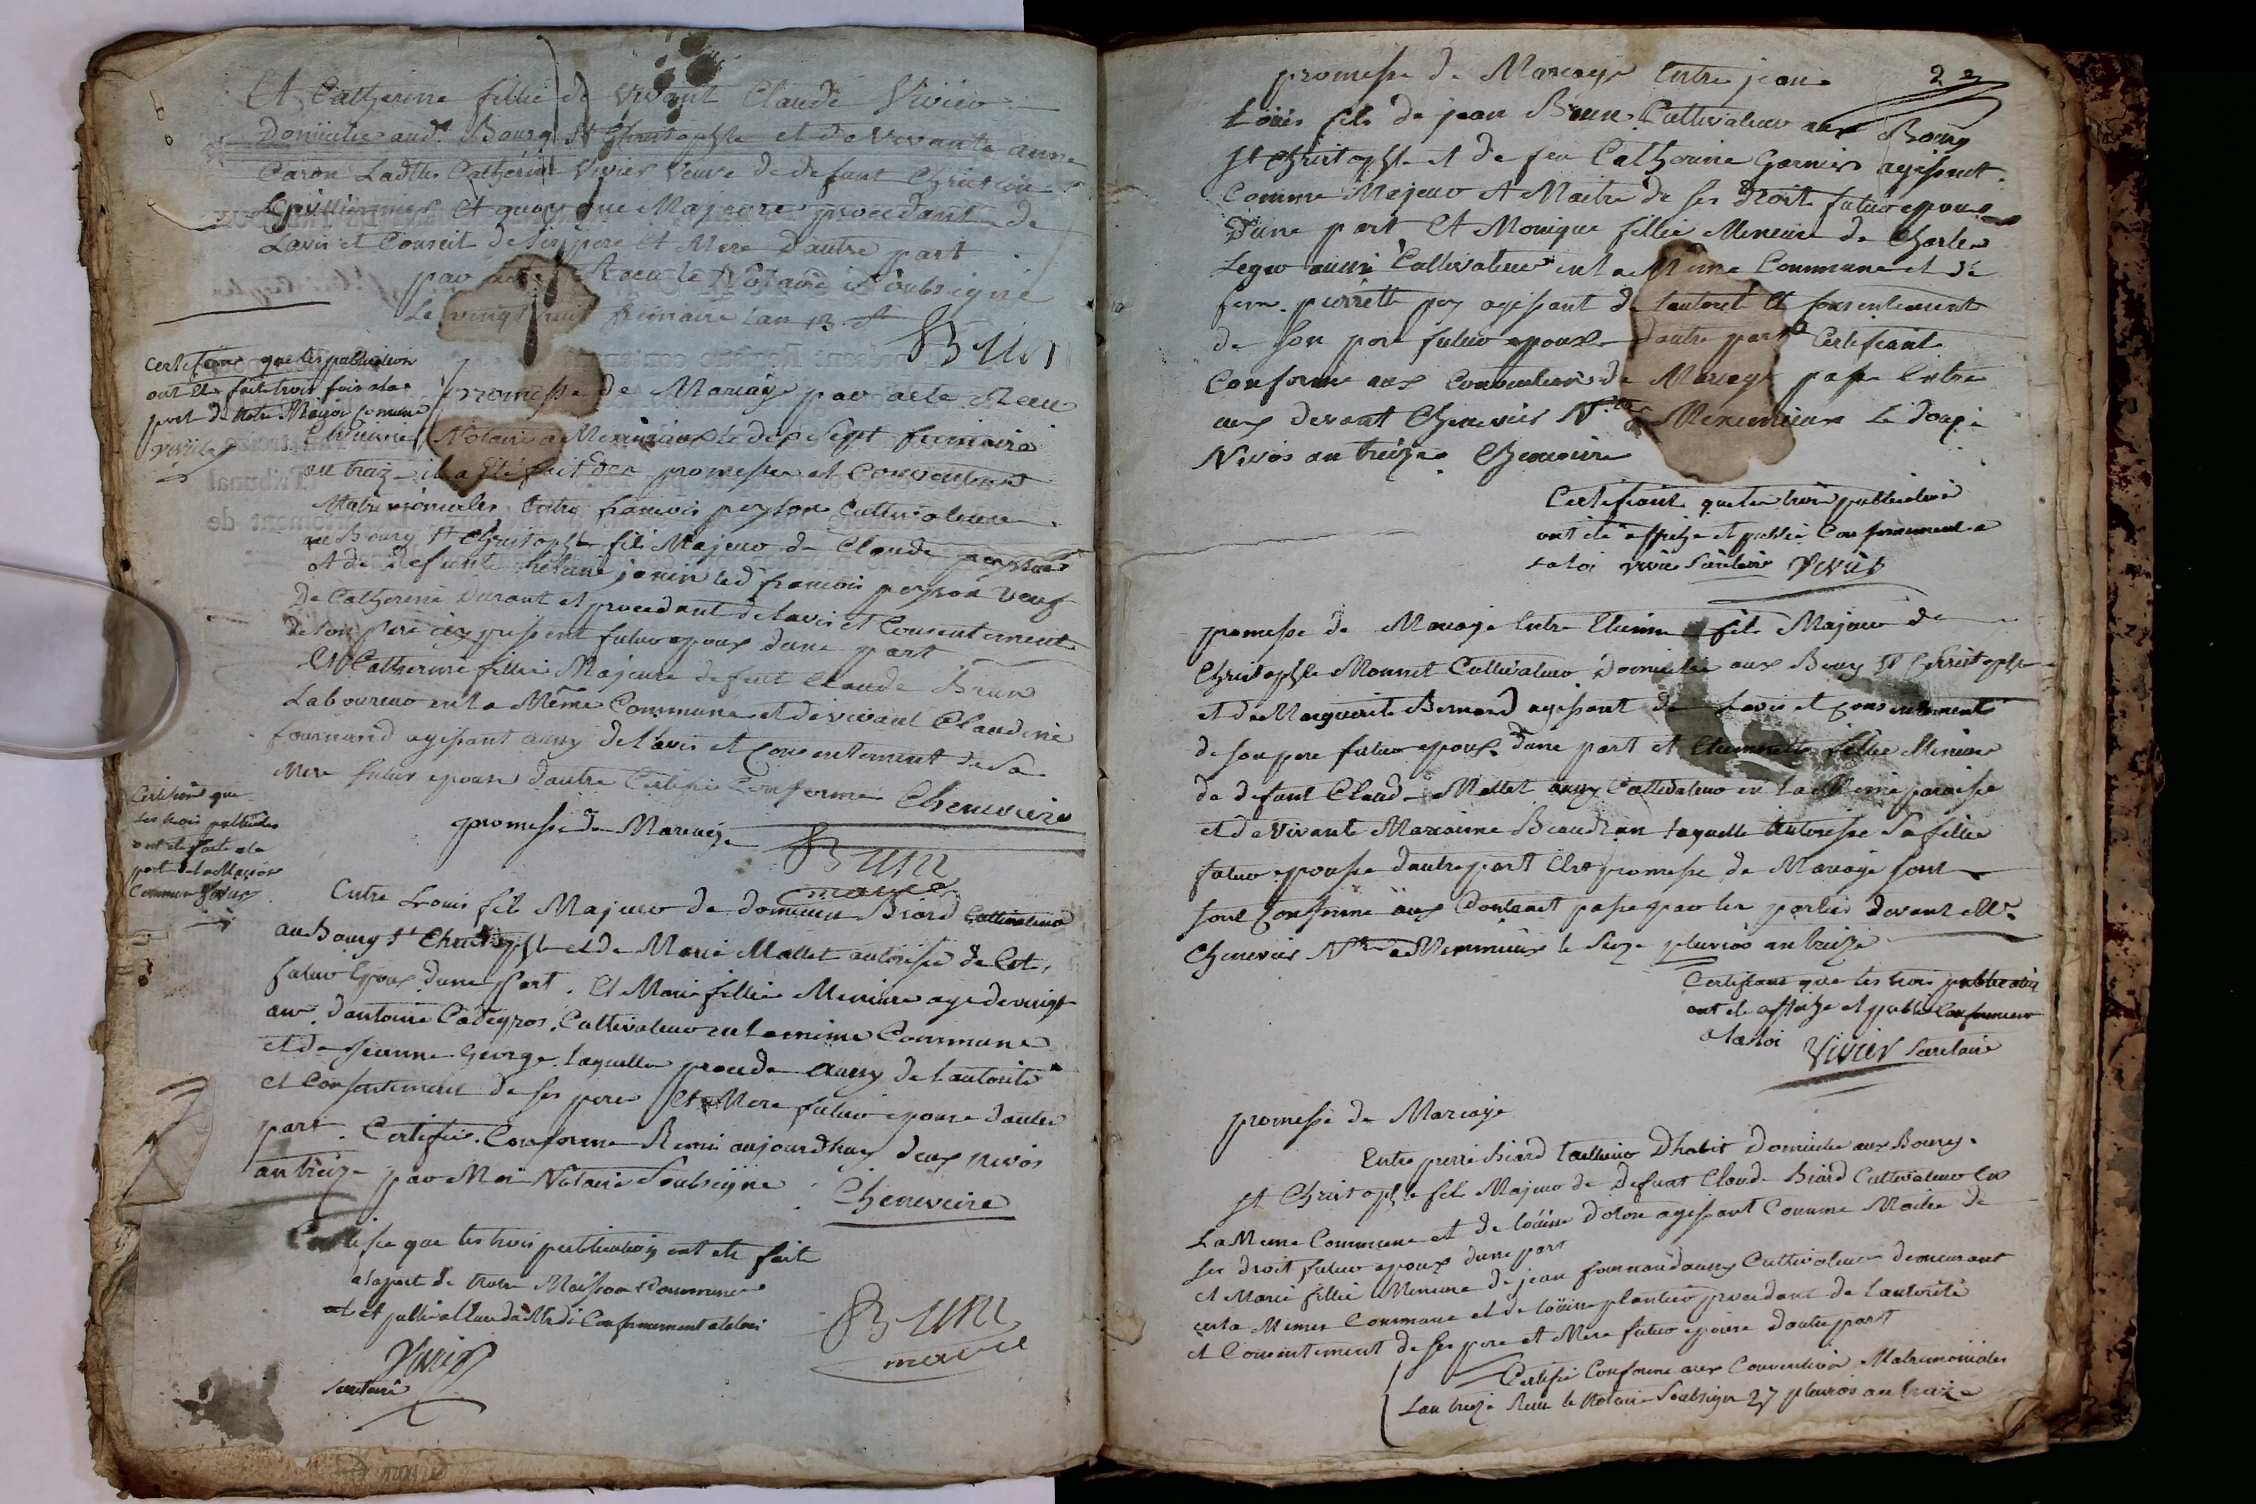 Et Catherine fillie de vivant Claude Vivier
Domicilie aud. Bourg St Christophle et de vivante anne
Caron Ladtte Catherine Vivier Veuve de defunt Christin
Et quoy que Majeure procedant de
Lavis et Conseit de ses pere et Mere Dautre part
par acte Recu le Notaire Soubsigné
Le vingt huit frimaire lan 13
Brun
Certifions que les publication
ont ete faite trois fois ala
port de Notre Maison Comune
Vivier
promesse de Mariage par acte Recu
Chenevier Notaire a Meximieux le dix sept frimaire
an treize il a ete fait des promesses et Convention
Matrimonielles Entre francois peyson Cultivateur
au Bourg St Christophle fils Majeur de Claude peyson
et de Defunte helaine janin led francois peyson veuf
De Catherine Durant et procedant de lavis et Consentement
de son pere icy present futur epoux dune part
Et Catherine fillie Majeure de feut Claude Brun
Laboureur en la Même Commune et de vivant Claudine
fournand agissant aussy de lavis et Consentement de Sa
Mere futur epouse dautre Certifié Conforme Chenevière
Certifions que
les trois publication
ont ete faite ala
port de la Maison
Commune Vivier
promesse de Mariage
Brun
maire
Entre Louis fils Majeur de dominique Biard Cultivateur
au Bourg St Christophle et de Marie Mallet autorisé de Cet.
futur Epoux dune part. Et Marie fillie Mineure age de vingt
ans dantoine Cadegros, Cultivateur en la meme Commune
et de jeanne George. laquelle procede aussy de lautorité
et Consentement de ses pere Et Mere future epouse dautre
part. Certifié. Conforme Remis aujourdhuy deux nivos
an treize par Moi Notaire Soubsigne Cheneviere
Certifie que les trois publication ont ete fait
ala port de Notre Maison Commune
et publié alheure de Midi Conformement ala loi
Vivier
Secretaire
Brun
maire
2
promesse de Mariage Entre jean
Louis fils de jean Brun Cultivateur aux Bourg
St Christophle et de feu Catherine Garnier agissant
Comme Majeur et Maitre de ses Droit futur epoux
Dune part Et Monique fillie Mineure de Charles
Leger aussi Cultivateur en la Même Commune et de
fem. pierrette pey agissant de lautorité et Consentement
de Son pere futur epouse dautre part Certifiant
Conforme aux Convention de Mariage passe Entre
eux devant Chenevier Nre a Meximieux Le douze
Nivos an treize Cheneviere
Certifiant que les trois publication
ont ete affiche et publie Conformement a
la loi Vivier Secretaire Vivier
promesse de Mariage Entre Etienne fils Majeur de
Christophle Monnet Cultivateur Domicilie aux Bourg St Christophle
et de Marguerite Bernard agissant de Lavis et Consentement
de son pere futur epoux dune part et Etiennette fillie Mineure
de defunt Claude Mallet aussy Cultivateur en la Meme paroisse
et de Vivante Marianne Beaudran laquelle autorisse Sa fillie
future epousse dautre part Les promesse de Mariage sont
sont Conforme aux Contract passe par les parties devant Me.
Chenevier Nre a Meximieux le Seize pluvios an treize
Certifians que les trois publication
ont ete affiche et publie Conformement
a la loi Vivier Secretaire
promesse de Mariage
Entre pierre Biard tallieur Dhabit Domicilie aux Bourg
St Christophle fils Majeur de Defunt Claude Biard Cultivateur en
La Meme Commune et de louise agissant Comme Maitre de
ses droit futur epoux dune part
et Marie fillie Mineure de jean fournand aussy Cultivateur demeurant
en la Meme Commune et de louise plantier procedant de lautorité
et Consentement de ses pere et Mere future epouse dautre part
Certifié Conforme aux Convention Matrimoniales
Lan treize Recu le Notaire Soubsigné 27 pluvios an treize